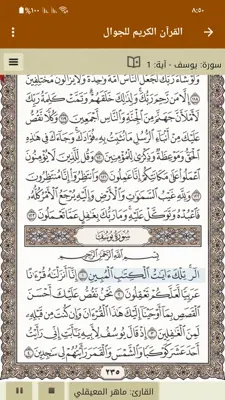 ٨:٥٠
٪١٠٠
القرآن الكريم للجوال
سورة: يوسف - آية: 1
وَلَوْ شَاءَ رَبُّكَ لَجَعَلَ النَّاسَ أُمَّةً وَاحِدَةً وَلَا يَزَالُونَ مُخْتَلِفِينَ
إِلَّا مَن رَّحِمَ رَبُّكَ وَلِذَٰلِكَ خَلَقَهُمْ وَتَمَّتْ كَلِمَةُ رَبِّكَ
لَأَمْلَأَنَّ جَهَنَّمَ مِنَ الْجِنَّةِ وَالنَّاسِ أَجْمَعِينَ وَكُلًّا نَّقُصُّ
عَلَيْكَ مِنْ أَنبَاءِ الرُّسُلِ مَا نُثَبِّتُ بِهِ فُؤَادَكَ وَجَاءَكَ فِي هَٰذِهِ
الْحَقُّ وَمَوْعِظَةٌ وَذِكْرَىٰ لِلْمُؤْمِنِينَ وَقُل لِّلَّذِينَ لَا يُؤْمِنُونَ
اعْمَلُوا عَلَىٰ مَكَانَتِكُمْ إِنَّا عَامِلُونَ وَانتَظِرُوا إِنَّا مُنتَظِرُونَ
وَلِلَّهِ غَيْبُ السَّمَاوَاتِ وَالْأَرْضِ وَإِلَيْهِ يُرْجَعُ الْأَمْرُ كُلُّهُ
فَاعْبُدْهُ وَتَوَكَّلْ عَلَيْهِ وَمَا رَبُّكَ بِغَافِلٍ عَمَّا تَعْمَلُونَ
سُورَةُ يُوسُفَ
بِسْمِ اللَّهِ الرَّحْمَٰنِ الرَّحِيمِ
الر تِلْكَ آيَاتُ الْكِتَابِ الْمُبِينِ إِنَّا أَنزَلْنَاهُ قُرْآنًا
عَرَبِيًّا لَّعَلَّكُمْ تَعْقِلُونَ نَحْنُ نَقُصُّ عَلَيْكَ أَحْسَنَ
الْقَصَصِ بِمَا أَوْحَيْنَا إِلَيْكَ هَٰذَا الْقُرْآنَ وَإِن كُنتَ مِن قَبْلِهِ
لَمِنَ الْغَافِلِينَ إِذْ قَالَ يُوسُفُ لِأَبِيهِ يَا أَبَتِ إِنِّي رَأَيْتُ
أَحَدَ عَشَرَ كَوْكَبًا وَالشَّمْسَ وَالْقَمَرَ رَأَيْتُهُمْ لِي سَاجِدِينَ
٢٣٥
القارئ: ماهر المعيقلي